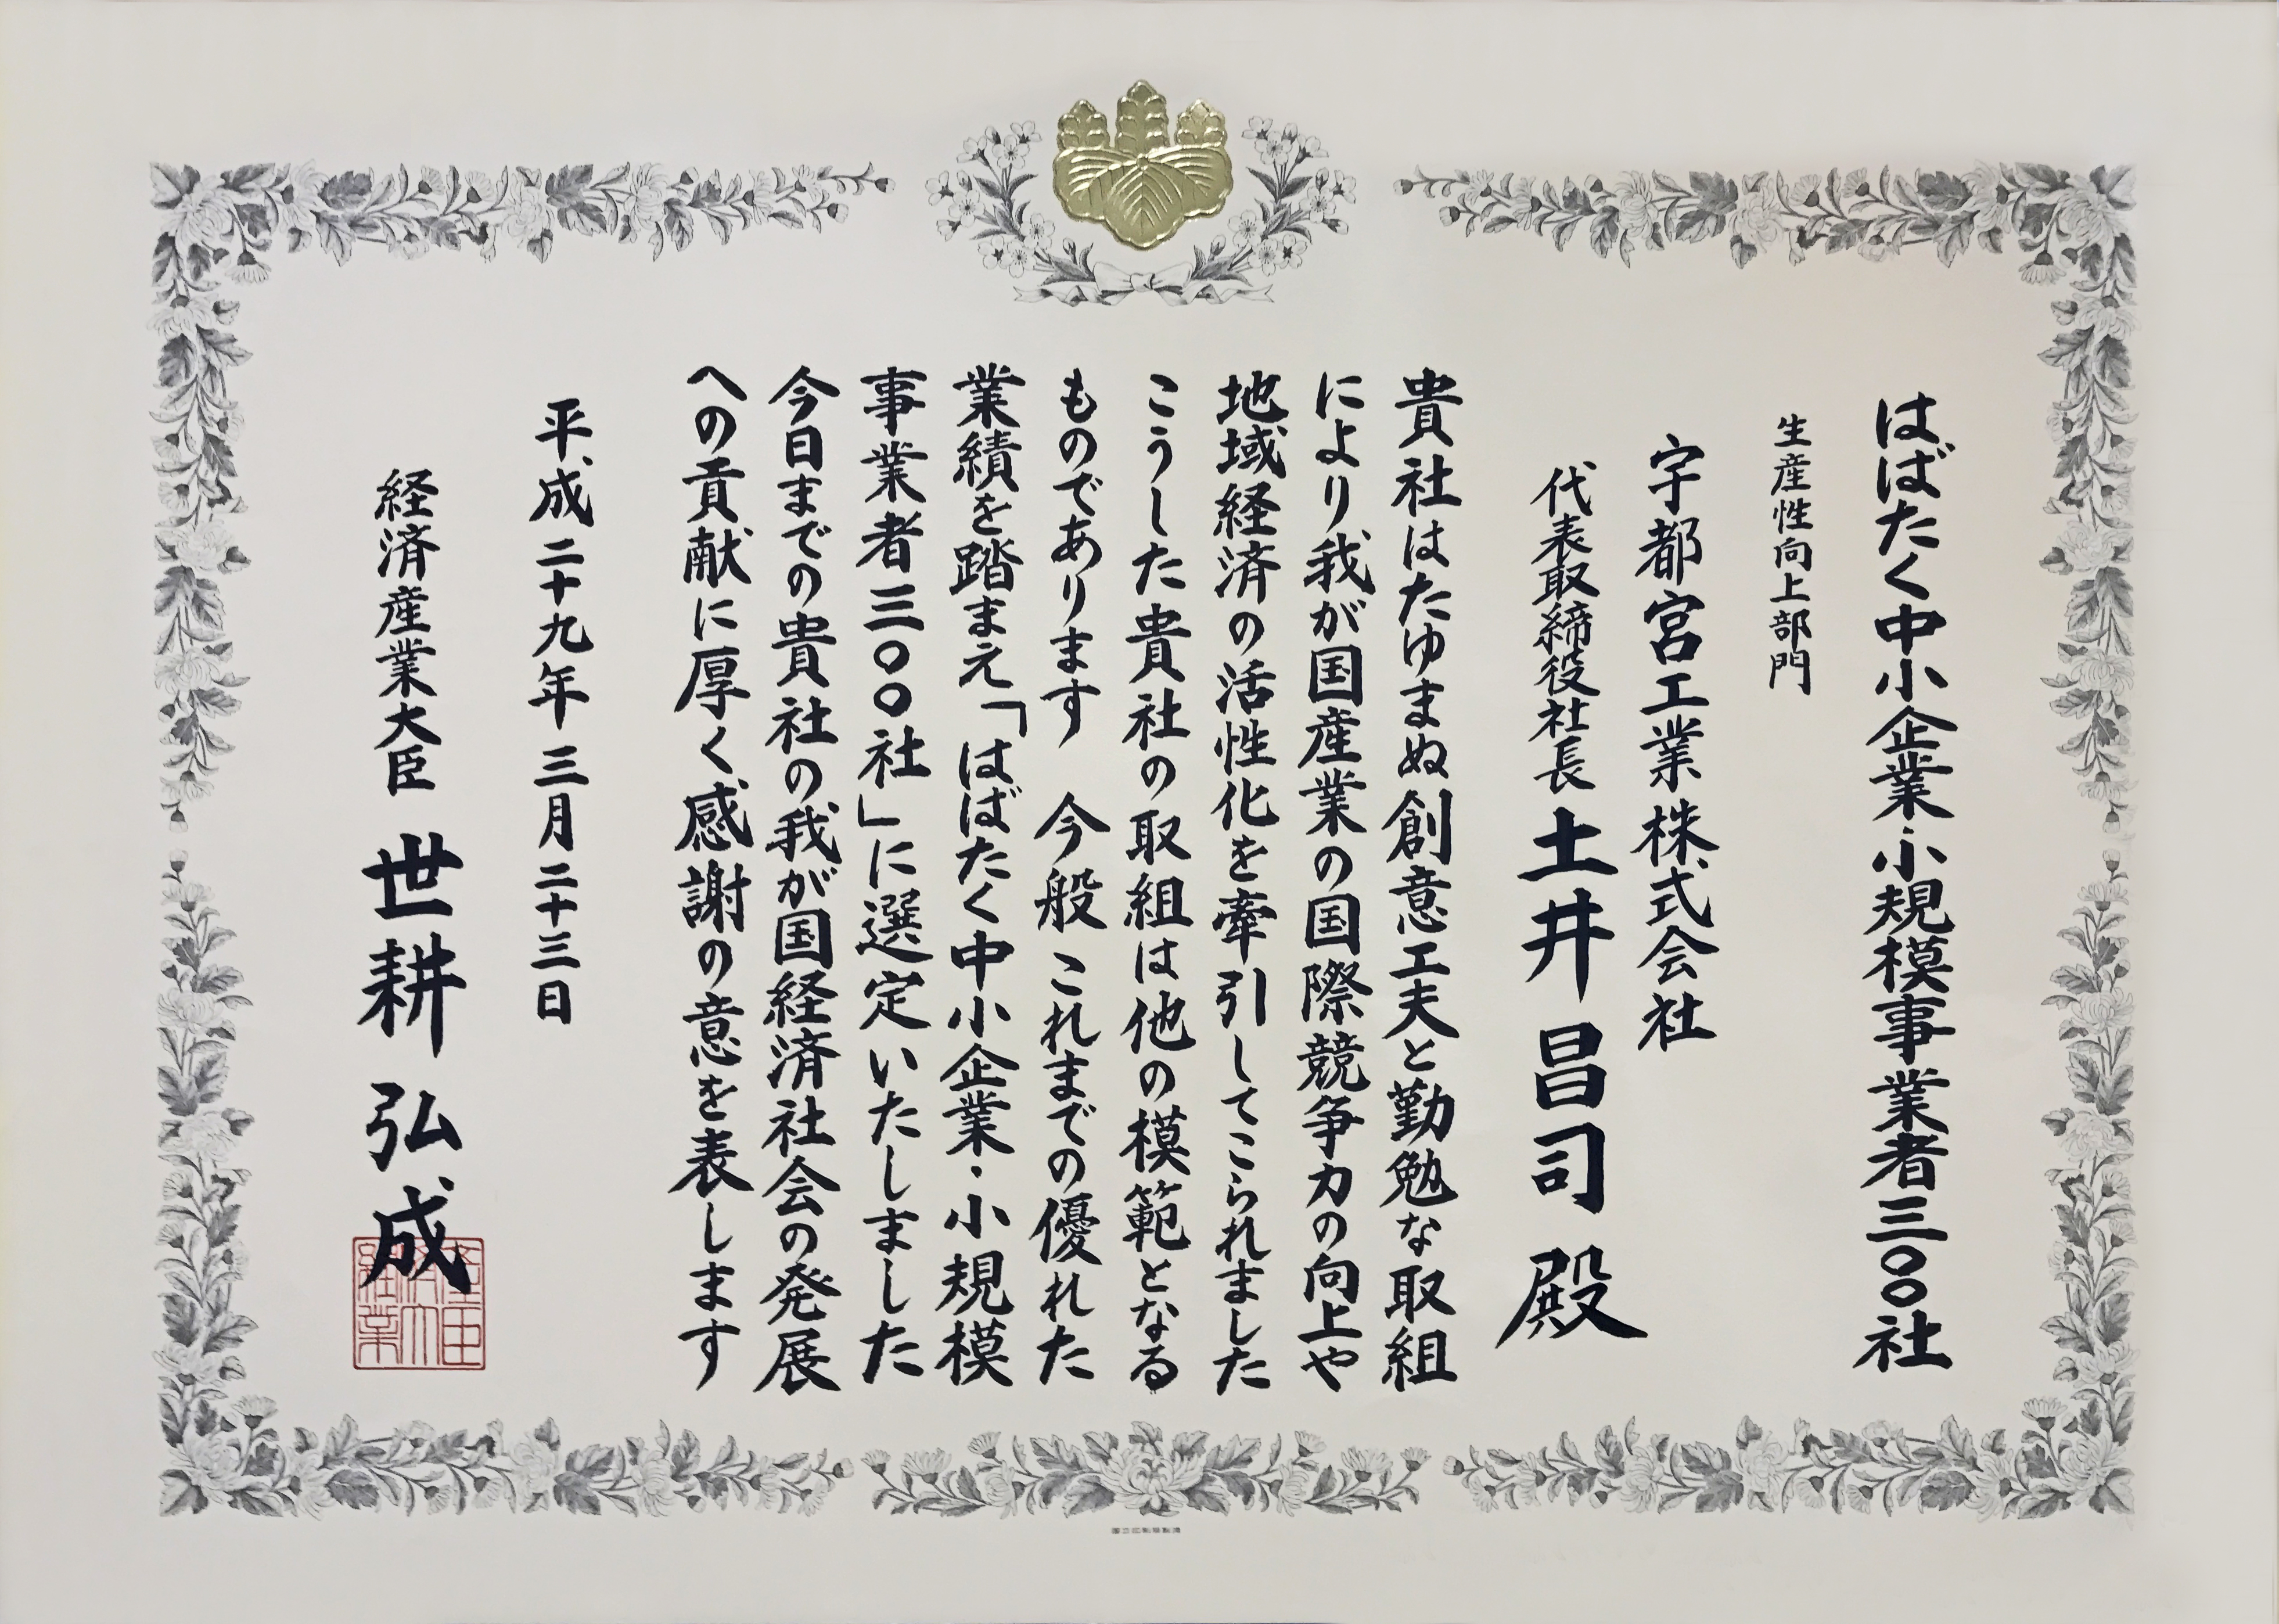 はばたく中小企業・小規模事業者三〇〇社
生産性向上部門
宇都宮工業株式会社
代表取締役社長 土井昌司 殿
貴社はたゆまぬ創意工夫と勤勉な取組
により我が国産業の国際競争力の向上や
地域経済の活性化を牽引してこられました
こうした貴社の取組は他の模範となる
ものであります 今般 これまでの優れた
業績を踏まえ「はばたく中小企業・小規模
事業者三〇〇社」に選定いたしました
今日までの貴社の我が国経済社会の発展
への貢献に厚く感謝の意を表します
平成二十九年三月二十三日
経済産業大臣 世耕弘成